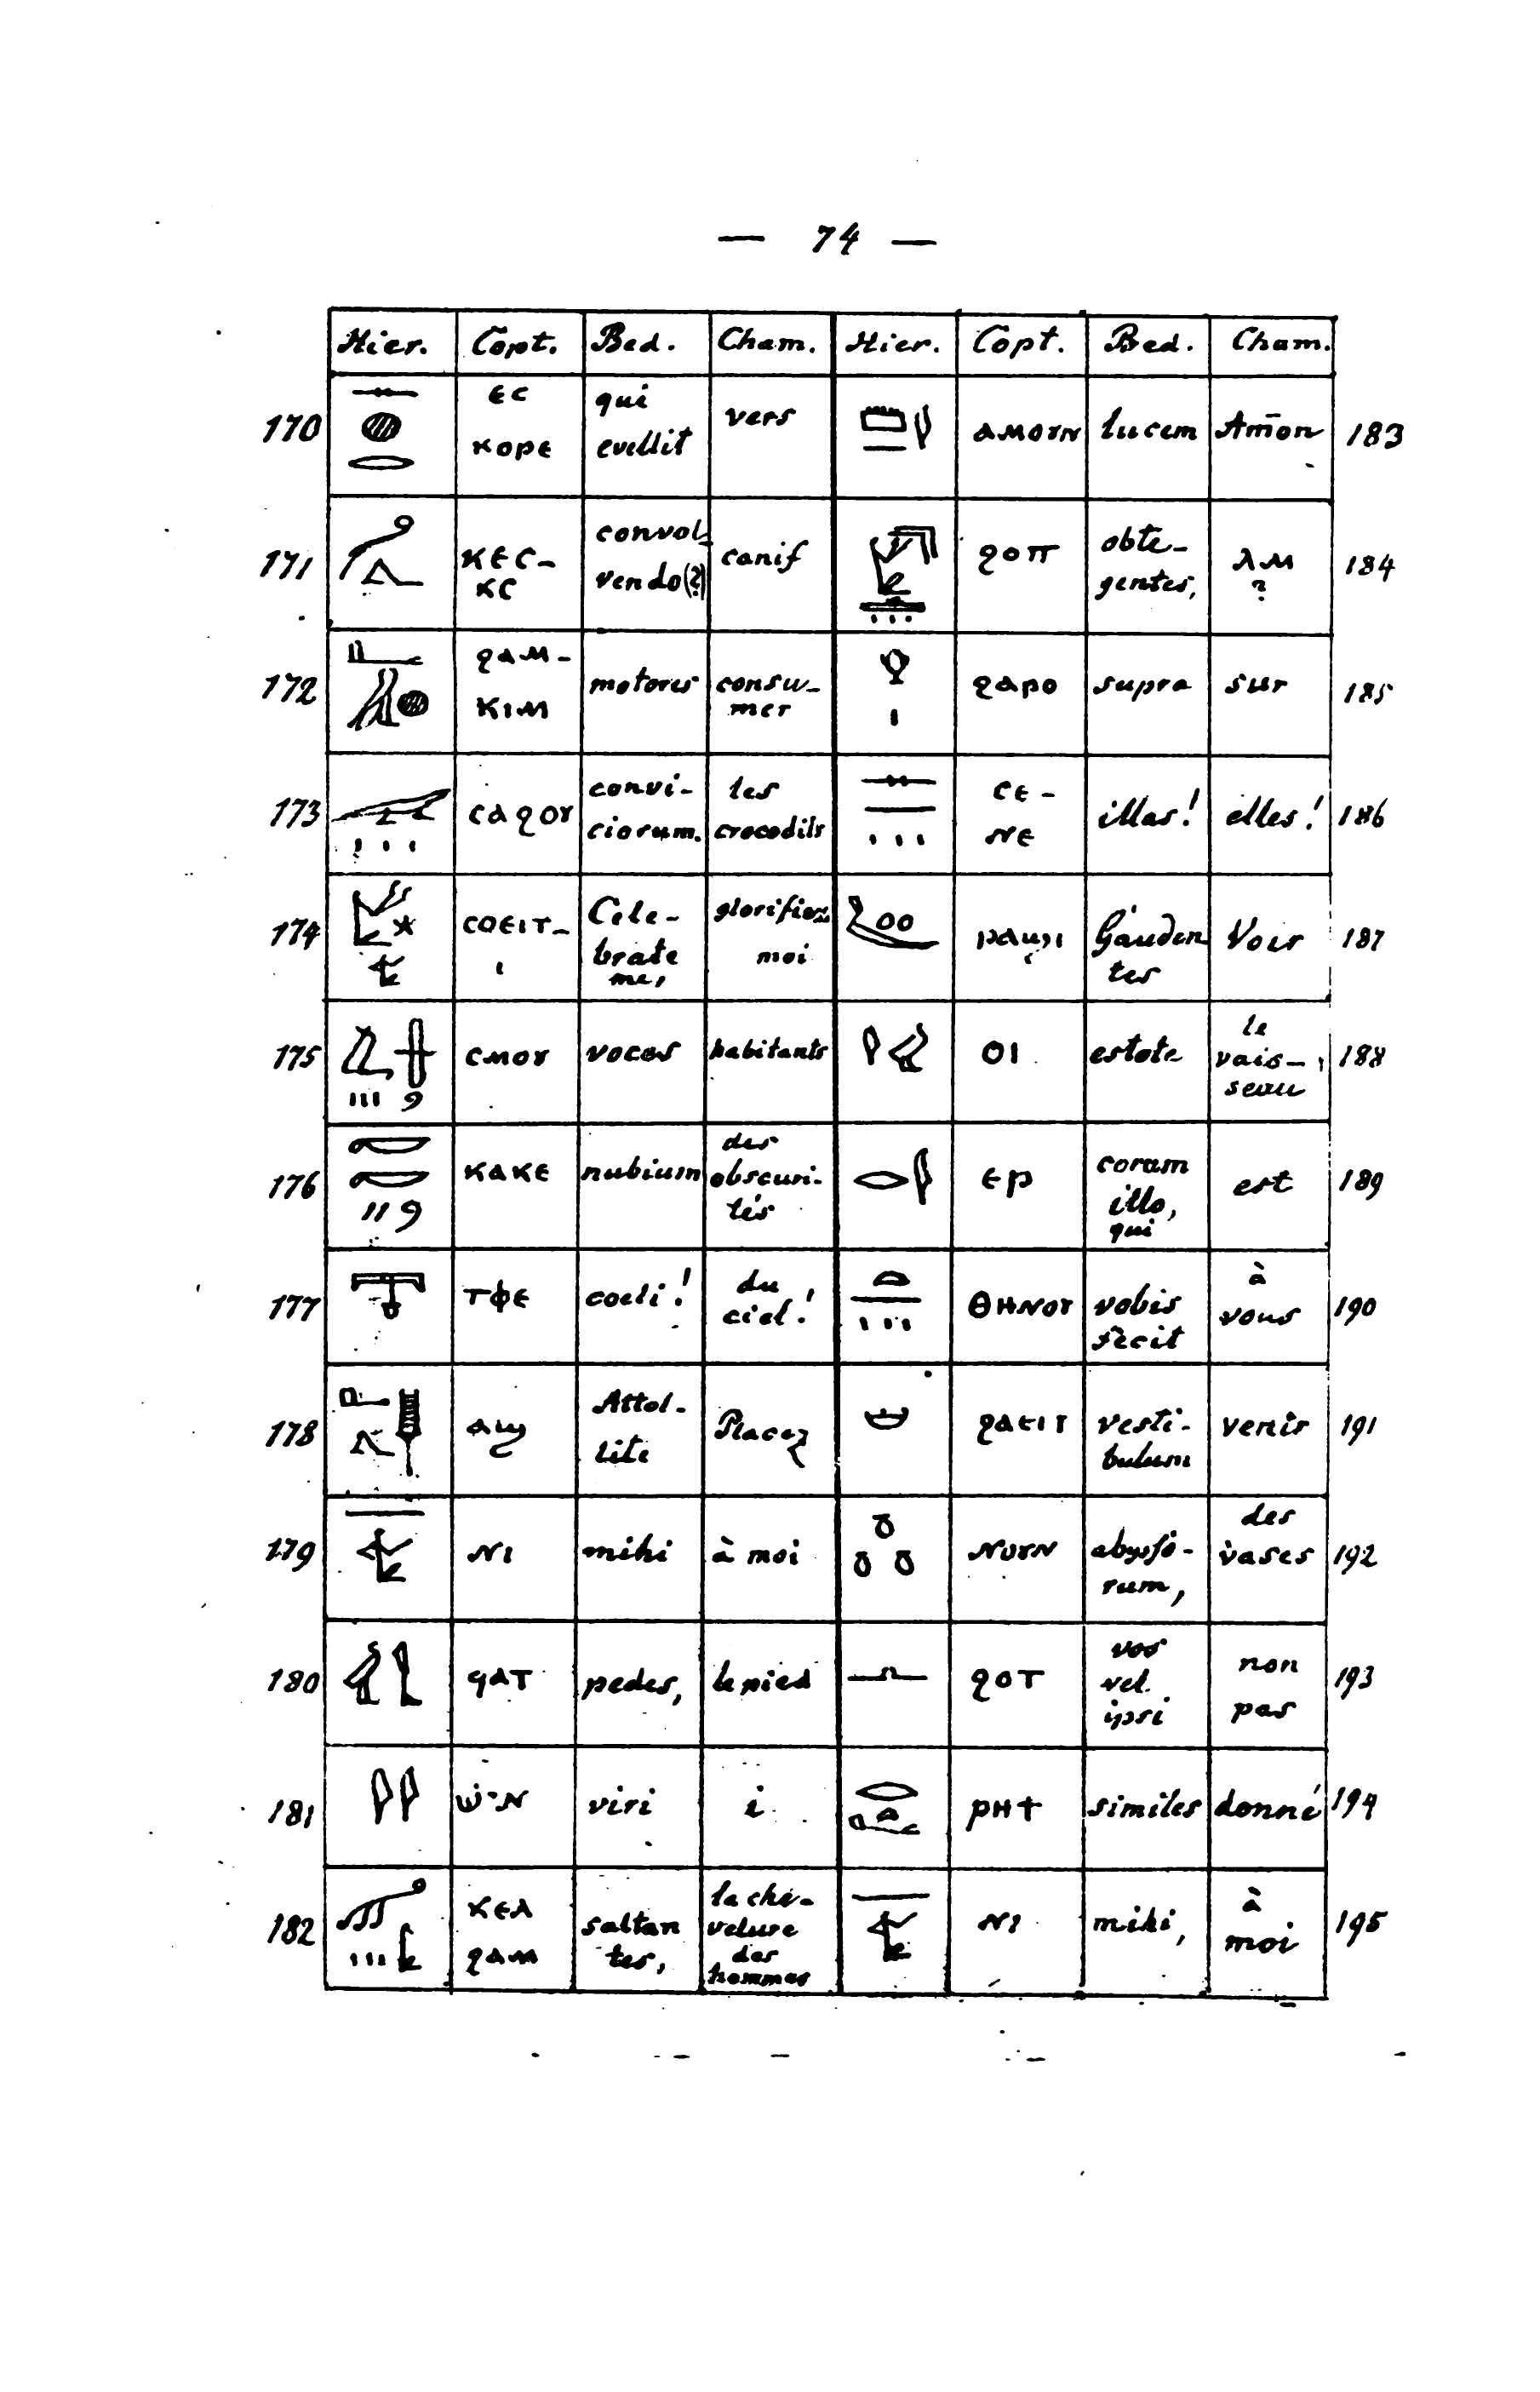 — 74 —
Hier. Copt. Bed. Cham. Hier. Copt. Bed. Cham.
170 ⲉⲥ ⲕⲟⲣⲉ qui evellit vers ⲁⲙⲟⲩⲛ lucem Amōn 183
171 ⲕⲉⲥ-ⲕⲥ convolvendo(?) canif ϩⲟⲡ obte-gentes, ⲗⲙ ? 184
172 ϩⲁⲙ-ⲕⲓⲙ motores consu-mer ϩⲁⲣⲟ supra sur 185
173 ⲥⲁϩⲟⲩ convi-ciorum. les crocodils ⲥⲉ-ⲛⲉ illas! elles! 186
174 ⲥⲟⲉⲓⲧ-ⲓ Cele-brate me, glorifiez moi ⲣⲁϣⲓ Gauden tes Voir 187
175 ⲥⲙⲟⲩ voces habitants ⲟⲓ estote le vais-seau 188
176 ⲕⲁⲕⲉ nubium des obscuri-tés ⲉⲣ coram illo, qui est 189
177 ⲧⲫⲉ coeli! du ciel! ⲑⲏⲛⲟⲩ vobis fecit à vous 190
178 ⲁϣ Attol-lite Placez ϩⲁⲉⲓⲧ vesti-bulum venir 191
179 ⲛⲓ mihi à moi ⲛⲟⲩⲛ abysso-rum, des vases 192
180 ϥⲁⲧ pedes, le pied ϩⲟⲧ vos vel ipsi non pas 193
181 viri i ⲣⲏϯ similes donné 194
182 ⲕⲉⲗ ϩⲁⲙ saltan tes, la che-velure des hommes ⲛⲓ mihi, à moi 195